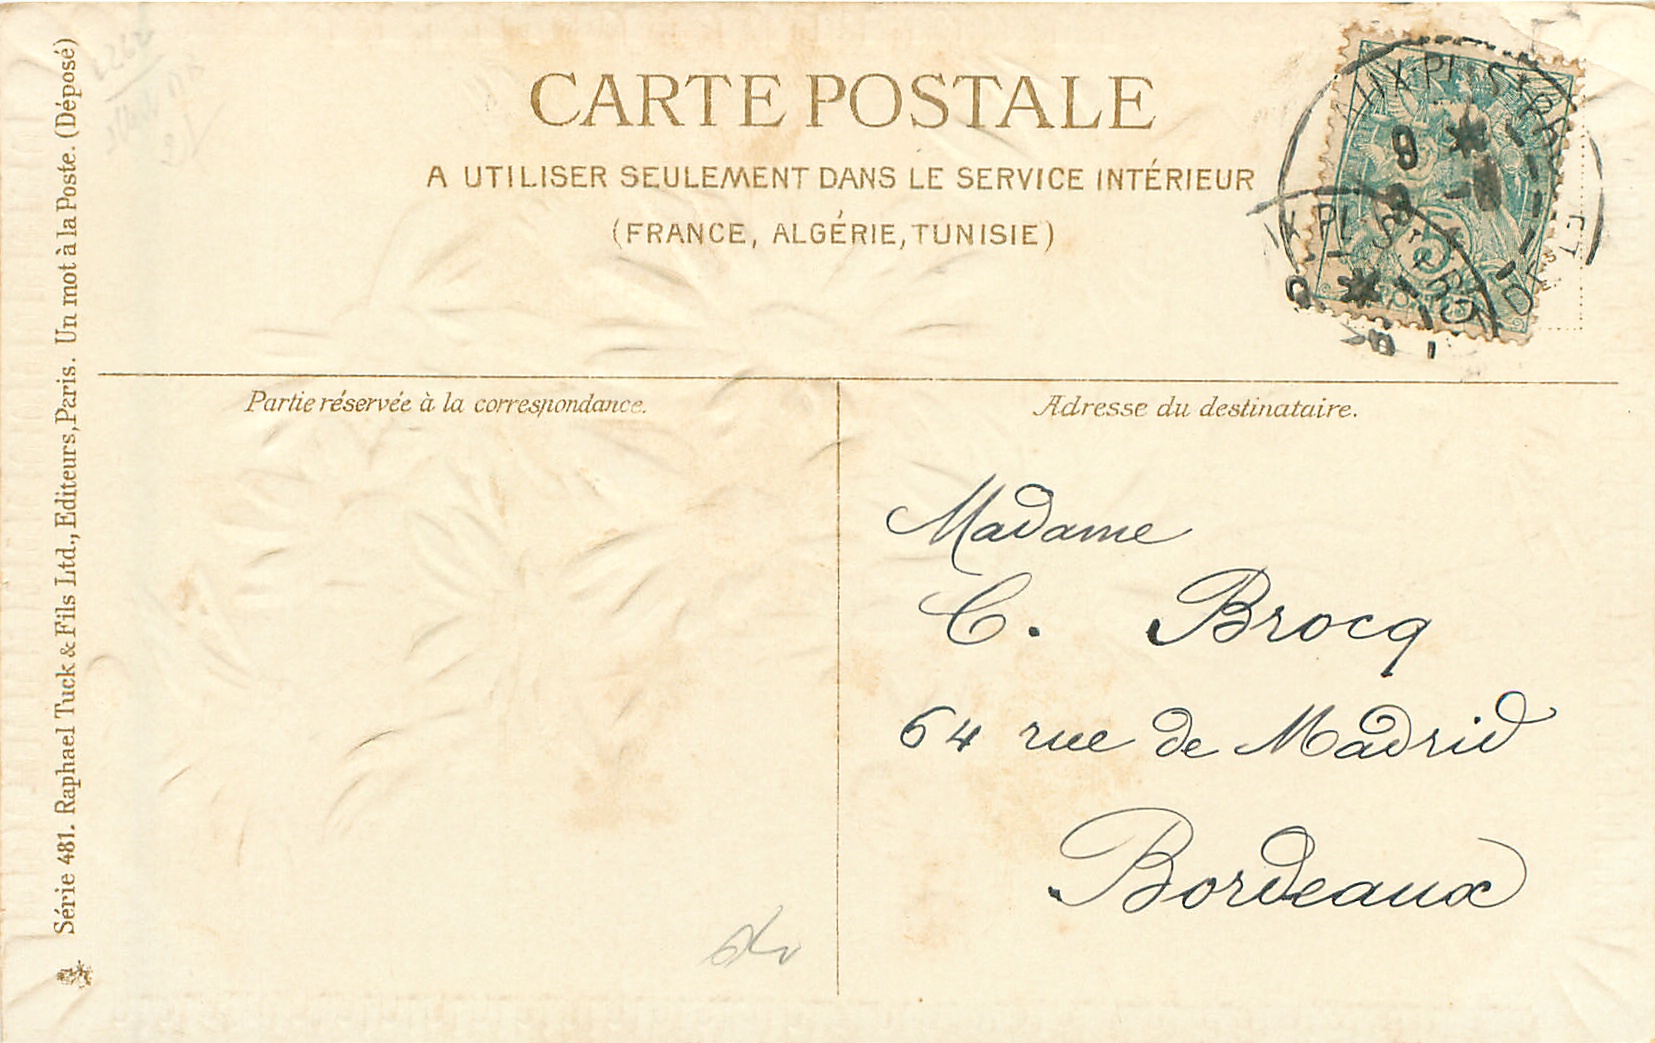 CARTE POSTALE
A UTILISER SEULEMENT DANS LE SERVICE INTÉRIEUR
(FRANCE, ALGÉRIE, TUNISIE)
Série 481. Raphael Tuck & Fils Ltd., Editeurs, Paris. Un mot à la Poste. (Déposé)
Partie réservée à la correspondance.
Adresse du destinataire.
Madame
C. Brocq
64 rue de Madrid
Bordeaux